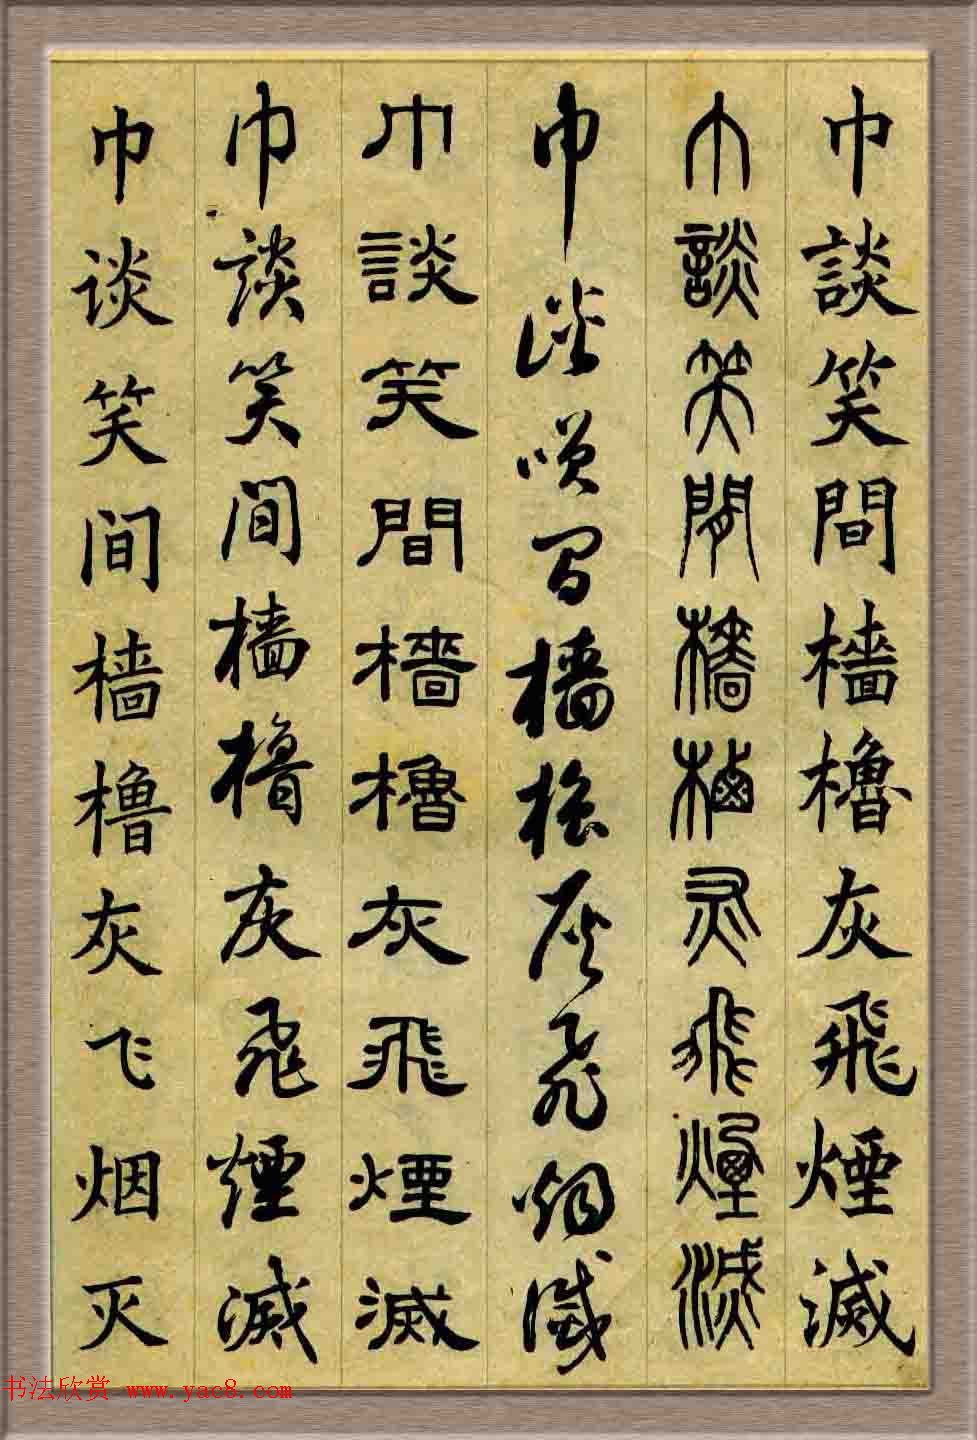 巾談笑間檣櫓灰飛煙滅
巾談笑間檣櫓灰飛煙滅
巾談笑間檣櫓灰飛煙滅
巾談笑間檣櫓灰飛煙滅
巾談笑間檣櫓灰飛煙滅
巾谈笑间樯橹灰飞烟灭
书法欣赏 www.yac8.com